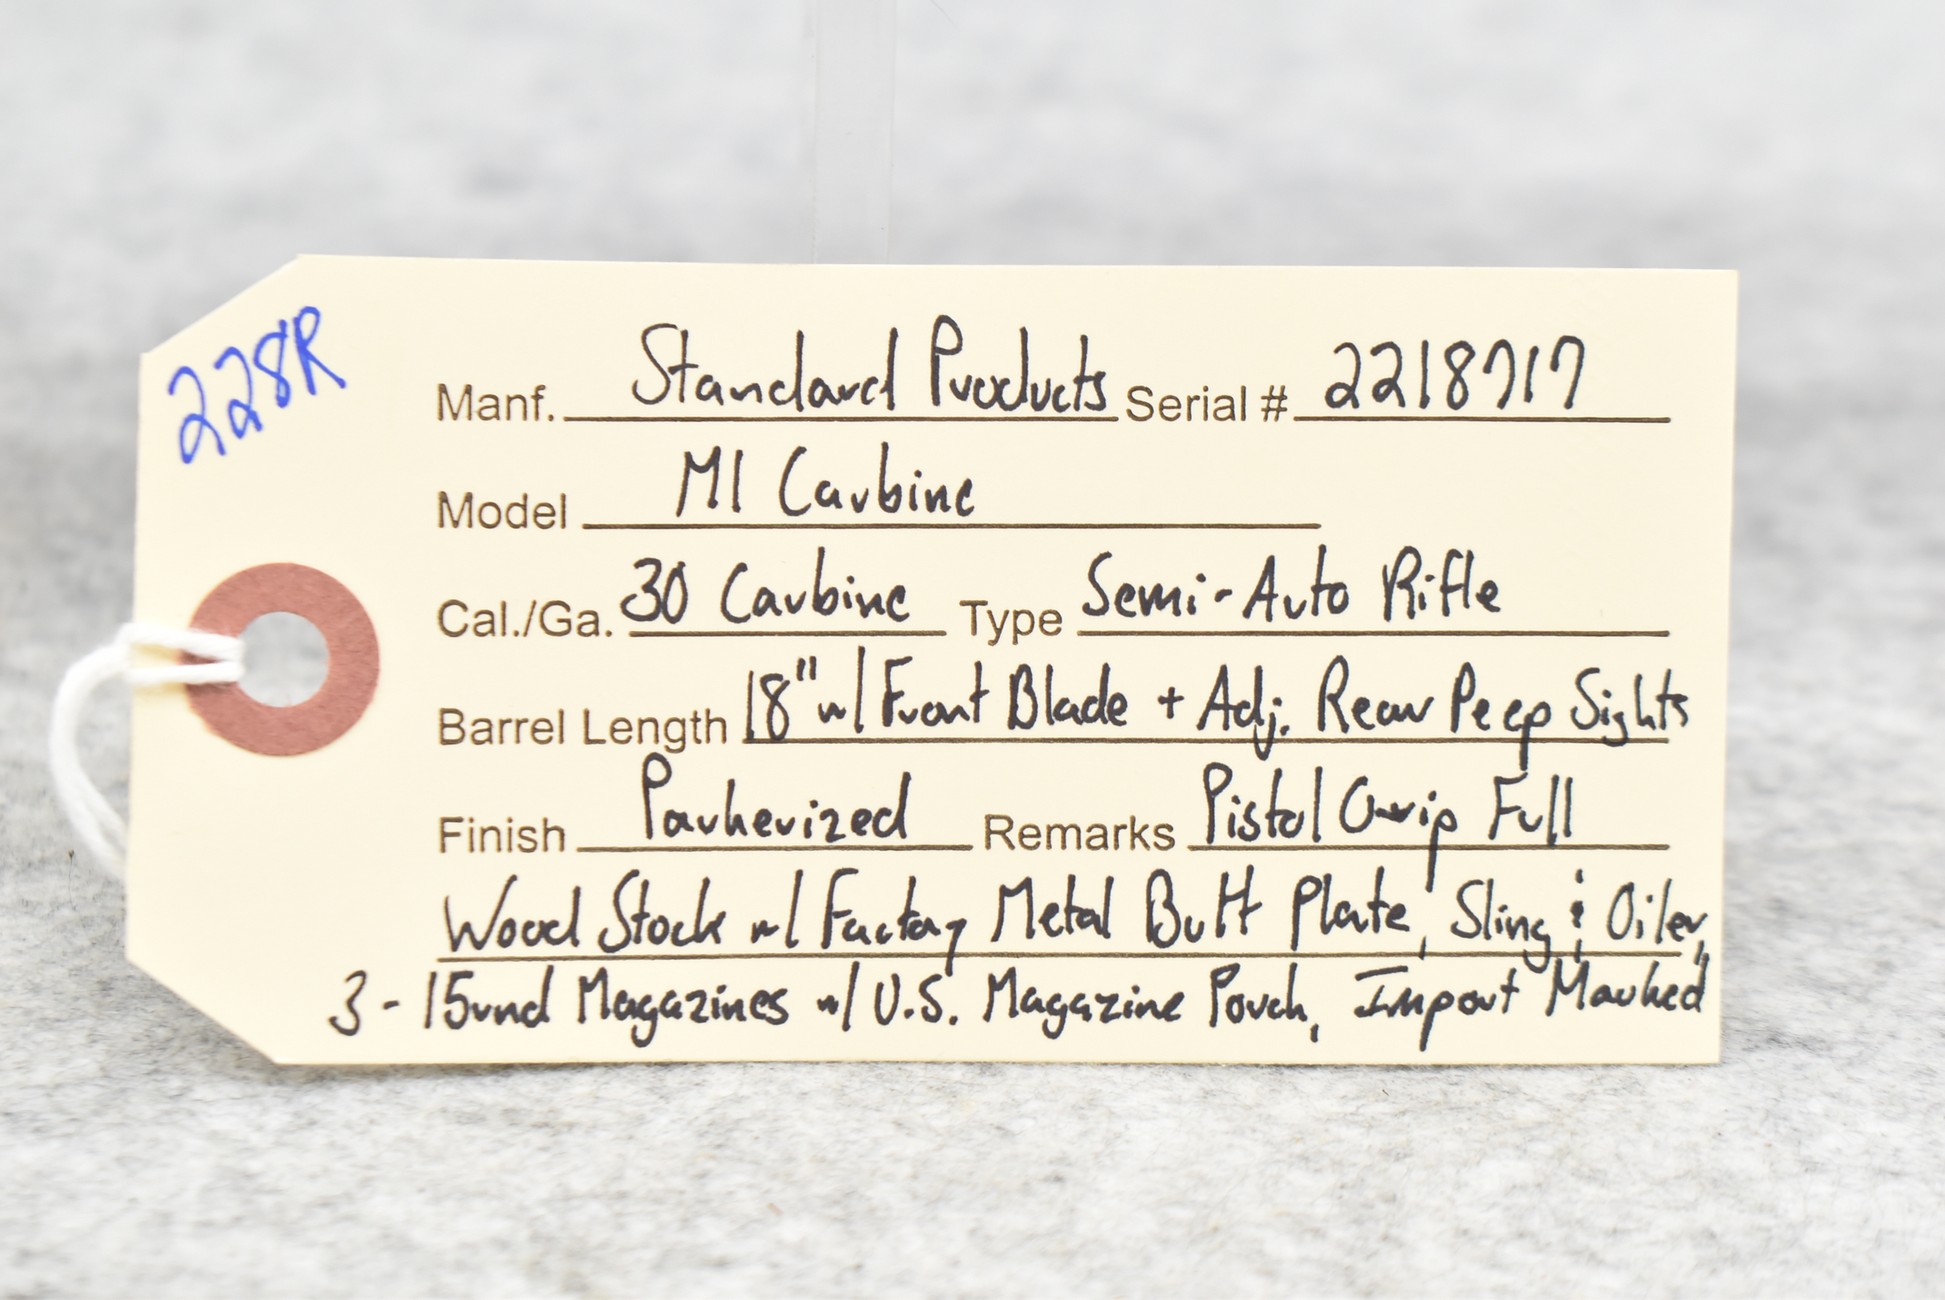 228R
Manf. Standard Products Serial # 2218717
Model M1 Carbine
Cal./Ga. 30 Carbine Type Semi-Auto Rifle
Barrel Length 18" w/ Front Blade + Adj. Rear Peep Sights
Finish Parkerized Remarks Pistol Grip Full
Wood Stock w/ Factory Metal Butt Plate, Sling & Oiler,
3-15rnd Magazines w/ U.S. Magazine Pouch, Import Marked